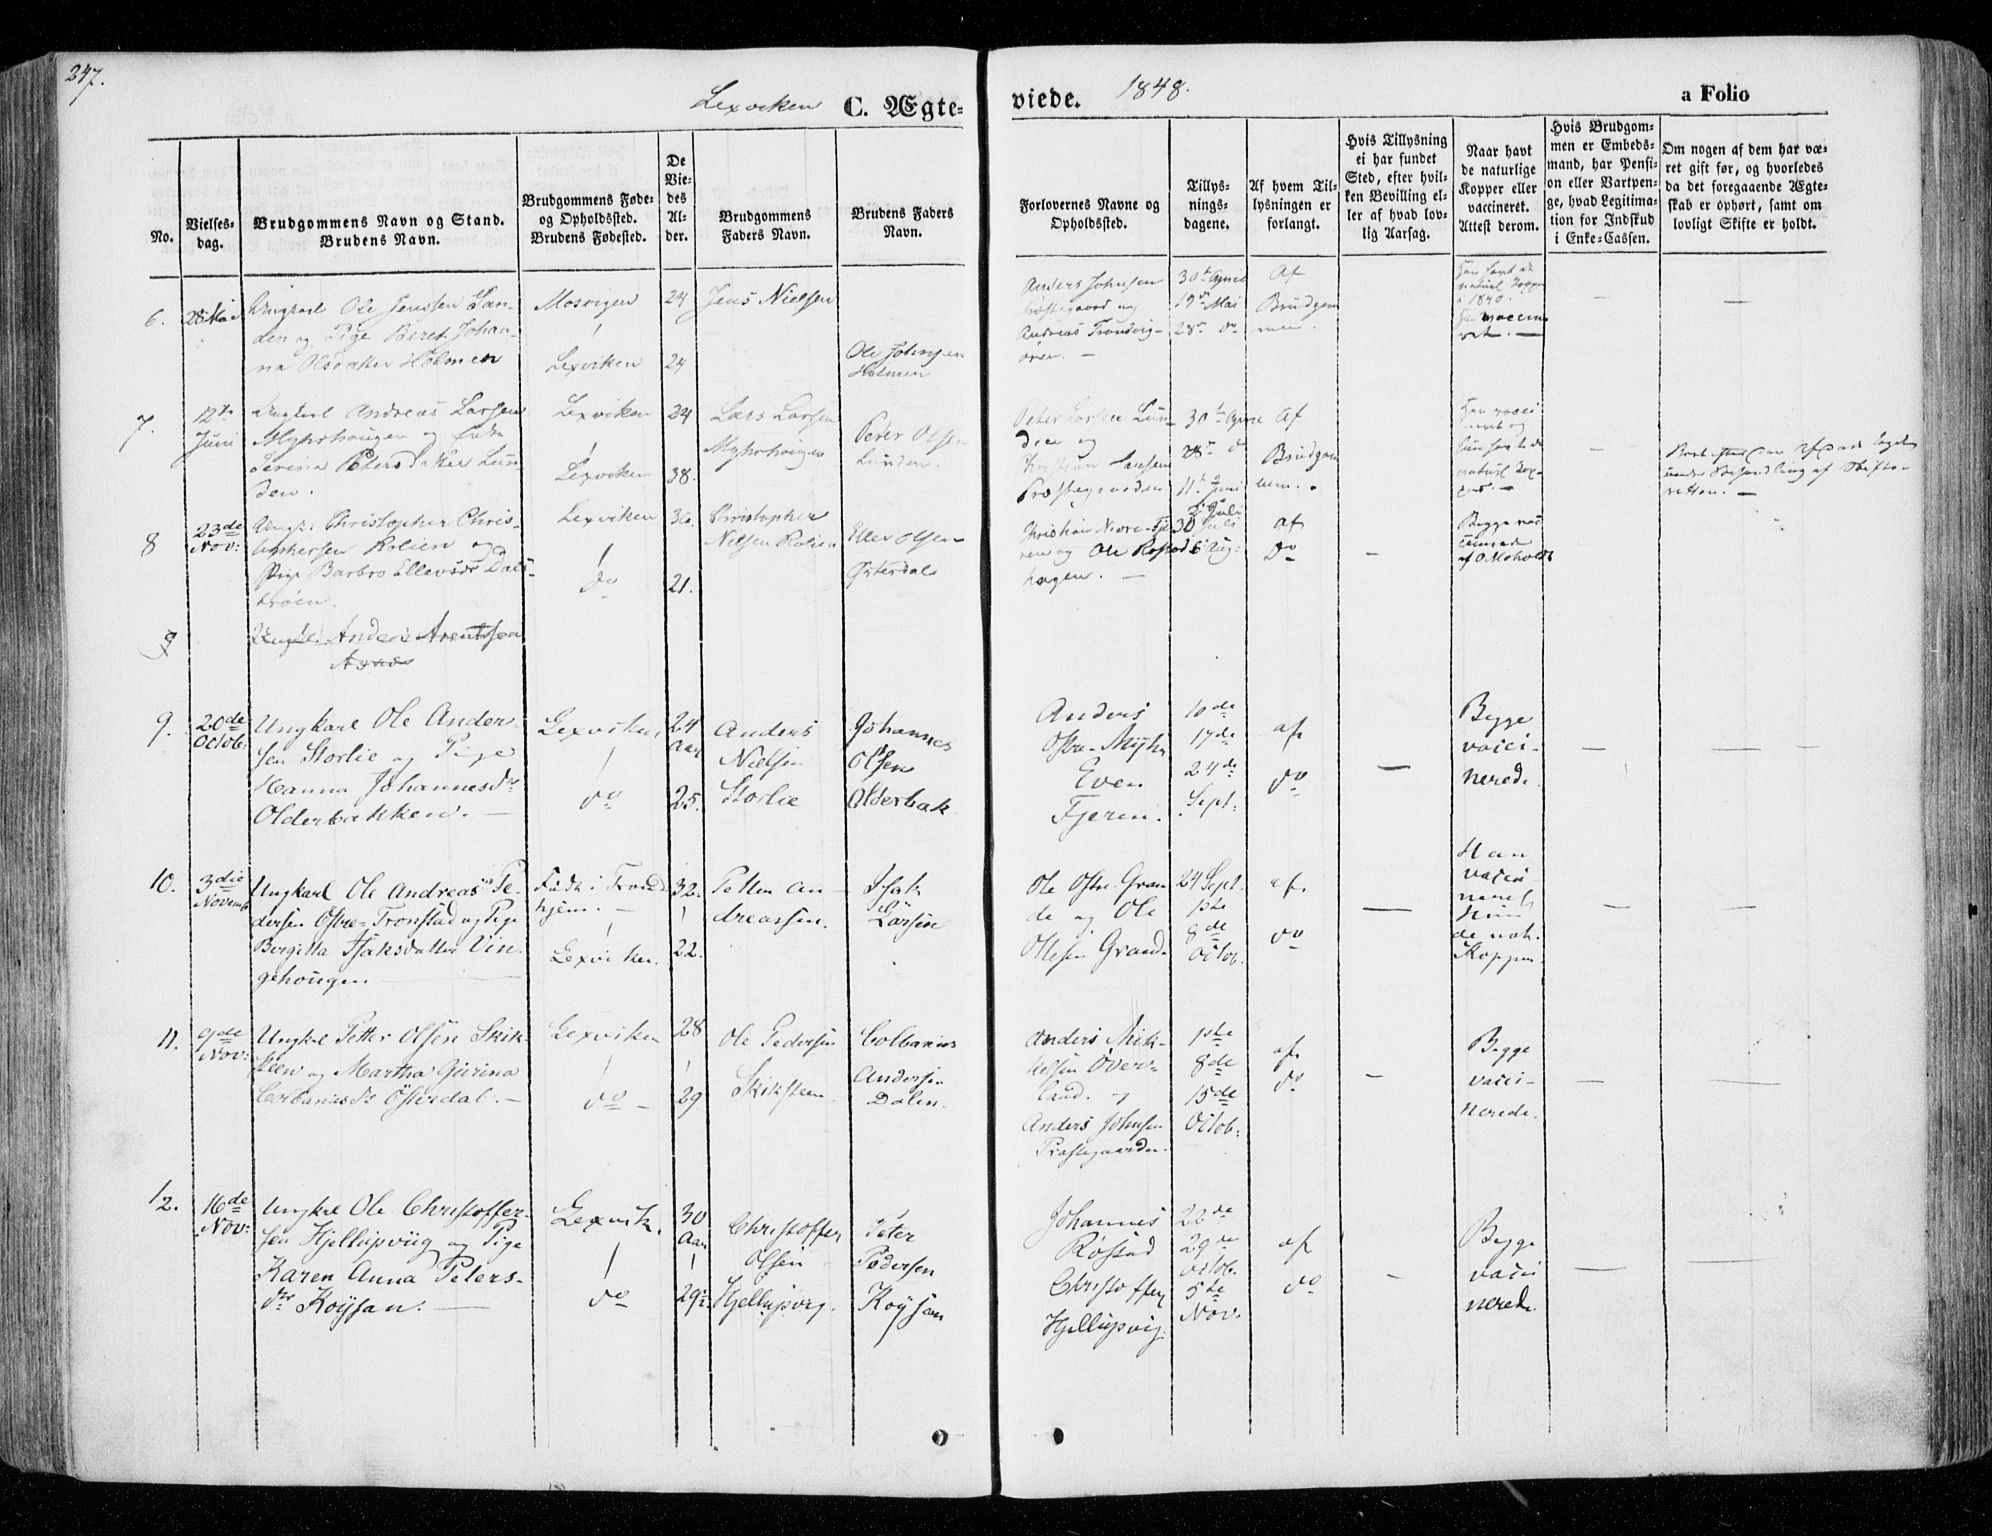 247.
Lexviken C. Ægte-
viede. 1848.
a Folio
No.
Vielses-
dag.
Brudgommens Navn og Stand.
Brudens Navn.
Brudgommens Føde-
og Opholdssted.
Brudens Fødested.
De
Vie-
des
Al-
der.
Brudgommens
Faders Navn.
Brudens Faders
Navn.
Forlovernes Navne og
Opholdssted.
Tillys-
nings-
dagene.
Af hvem Til-
lysningen er
forlangt.
Hvis Tillysning
ei har fundet
Sted, efter hvil-
ken Bevilling el-
ler af hvad lov-
lig Aarsag.
Naar havt
de naturlige
Kopper eller
vaccineret.
Attest derom.
Hvis Brudgom-
men er Embeds-
mand, har Pensi-
on eller Vartpen-
ge, hvad Legitima-
tion for Indskud
i Enke-Cassen.
Om nogen af dem har væ-
ret gift før, og hvorledes
da det foregaaende Ægte-
skab er ophørt, samt om
lovligt Skifte er holdt.
6.
28 Mai
Ungkarl Ole Jenssen San-
den og Pige Beret Johan-
na Olsdatter Holmen
Mosvigen
Lexviken
24
24
Jens Nielsen
Ole Johnsen
Holmen
Anders Johnsen
Præstegaard og
Andreas Trondvig-
øren. —
30te April
19de Mai
28de do
Af
Brudgom
men.
Han havt de
naturl. Kopper
i 1840.
Hun vaccine
ret. —
7.
12te
Juni
Ungkarl Andreas Larsen
Myhrhaugen og Enke
Serina Petersdatter Lun-
den.
Lexviken
Lexviken
34
38.
Lars Larsen
Myhrhaugen
Peter Olsen
Lunden.
Peter Larsen Lun-
den og
Christian Hansen
Præstegaarden
30te April
28de d
11te Juni
Af
Brudgom
men.
Han vacci
neret og
hun havt de
naturl. Kop-
per. —
under Behandling af Skifte-
retten. —
8
23de
Nov:
Ungk: Christopher Chris-
tophersen Rolien og
Pige Barbro Ellevsdr Dals-
trøen.
Lexviken
do
30.
21.
Christopher
Nielsen Rolien
Ellev Olsen
Østerdal
Christian Nore-Fje-
ren og Ole Røstad-
hagen. —
2 Juli
30 Juli
6 Aug:
af
do
Begge vac
cinerede
af O Moholdt
9
Ungkl. Anders Arentsen
Aznes
9.
20de
Octob:
Ungkarl Ole Ander-
sen Storlie og Pige
Hanna Johannesdr
Olderbakken. —
Lexviken
do
24
Aar
25.
Anders
Nielsen
Storlie
Johannes
Olsen
Olderbak
Anders
Østre-Myhr
Even
Fjeren.
10de
17de
24de
Sept:
af
do
Begge
vacci-
nerede
10.
3die
Novemb
Ungkarl Ole Andreas Pe-
dersen Østre-Tronstad og Pige
Bergitta Isaksdatter Vin-
gehougen —
Født i Trond
hjem. —
Lexviken.
32.
22.
Petter An-
dreassen.
Isak
Larsen
Ole Østre-Gran-
de og Ole
Olesen Grande
24 Sept.
1ste
8de
Octob.
af
do
Han
vacci
neret
Hun
de nat.
Kopper
11.
9de
Nov:
Ungkrl Petter Olsen Skik-
steen og Martha Gurina
Colbanusdr Østerdal. —
Lexviken
do —
28
29
Ole Pedersen
Skiksteen
Colbanus
Andersen
Dalen.
Anders Mik-
kelsen Over-
land. og
Anders Johnsen
Præstegaarden.
1ste
8de
15de
Octob:
af
do
Begge
vacci-
nerede.
12.
16de
Nov:
Ungkrl Ole Christoffer-
sen Hjellupviig og Pige
Karen Anna Peters-
dr Köysan. —
Lexvik.
do
30
Aar
29½
Christoffer
Olsen
Hjellupvig.
Peter
Pedersen
Köysan
Johannes
Røstad
Christoffer
Hjellupvig.
22de
29de
Octob.
5te
Nov.
af
do
Begge
vacci
nerede